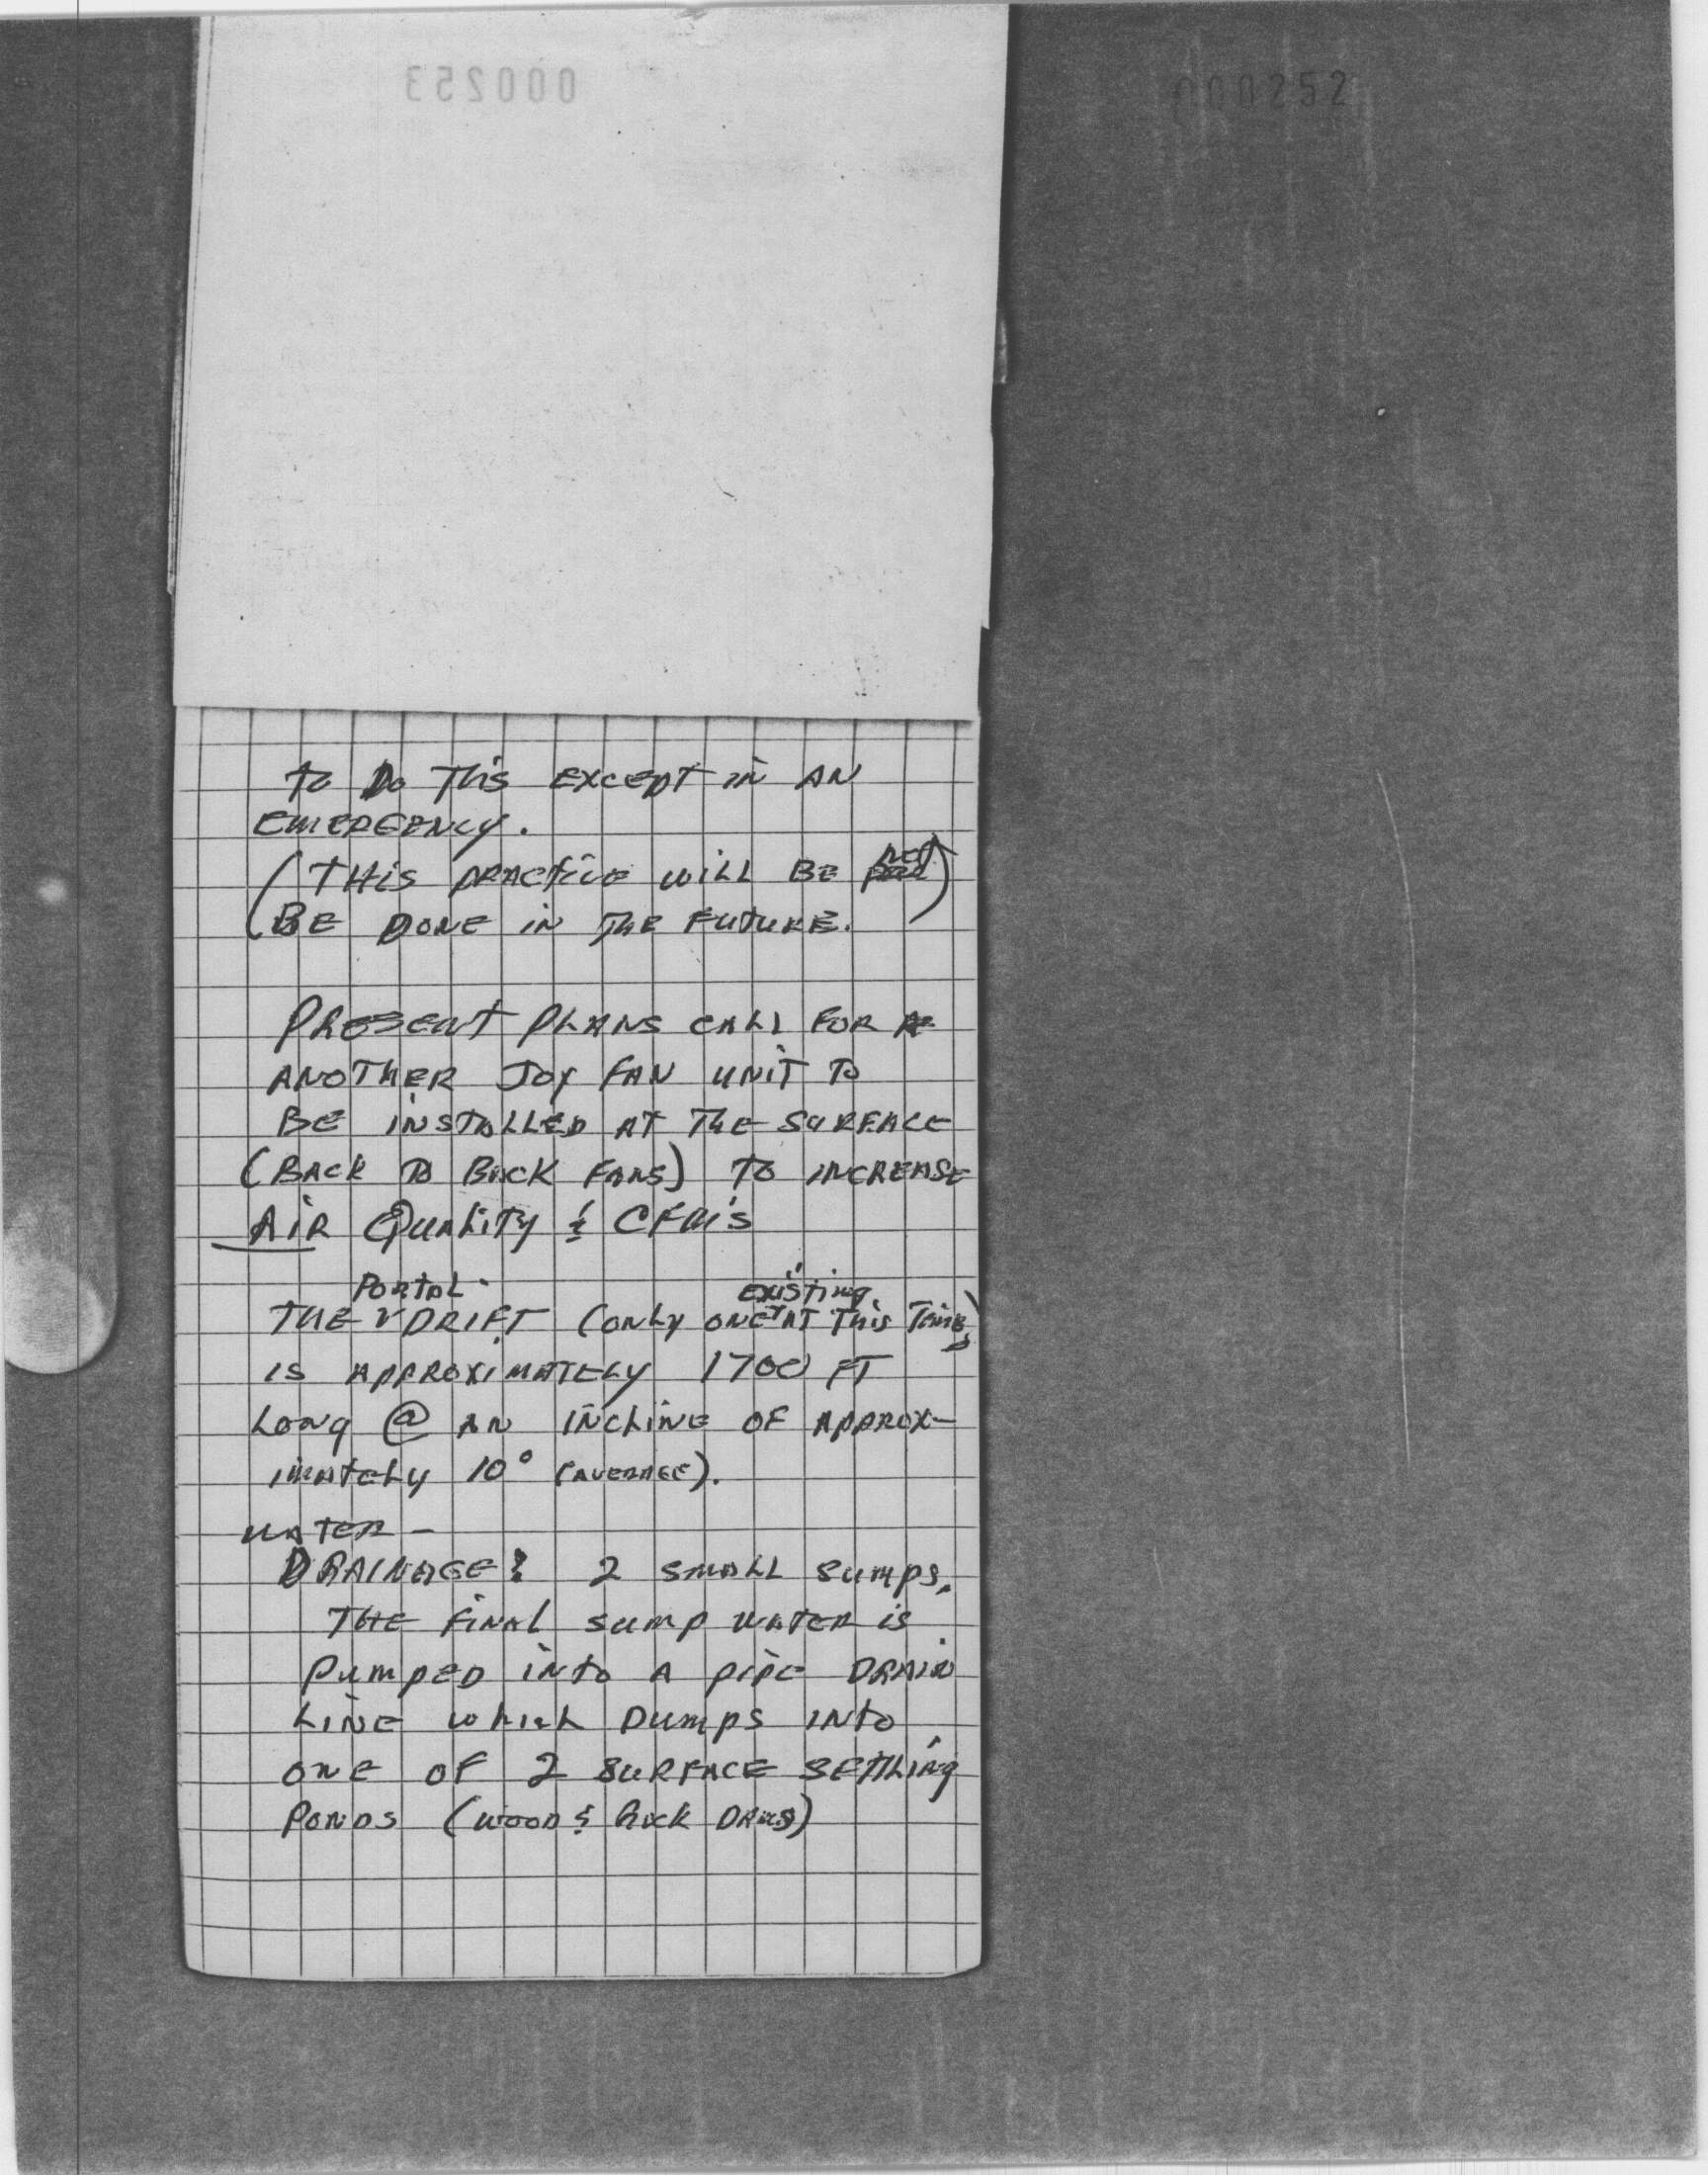 000253
000252
to Do This except in AN
EMERGENCY.
(THis practice will BE not)
(BE DONE in The Future.
Present Plans call for
ANOTHER Joy FAN unit to
BE installed at The surface
(BACK to BACK FANS) to increase
Air Quality & CFM's
Portal existing
THE DRIFT (only one AT This Time)
is approximately 1700 FT
Long @ AN incline OF Approx-
imately 10° (AVERAGE).
Water -
DRAINAGE: 2 small sumps.
THE final sump water is
Pumped into A pipe DRAIN
Line which Dumps into
one of 2 surface settling
Ponds (wood & Rock DAMS)